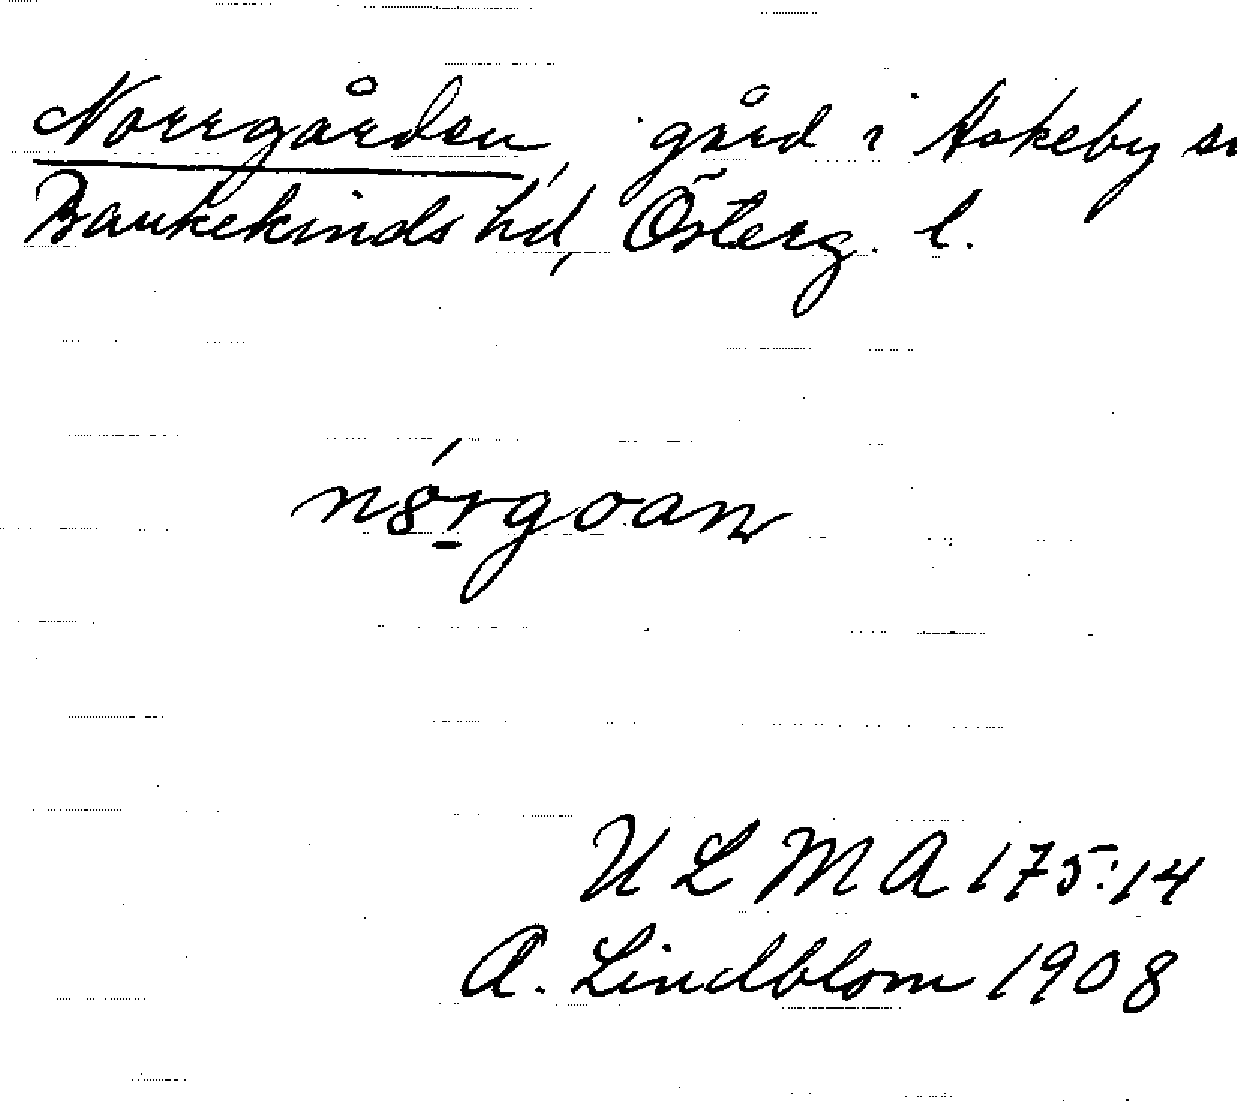 Norrgården, gård i Askeby sn
Bankekinds hd, Österg. l.
ULMA 175:14
A. Lindblom 1908